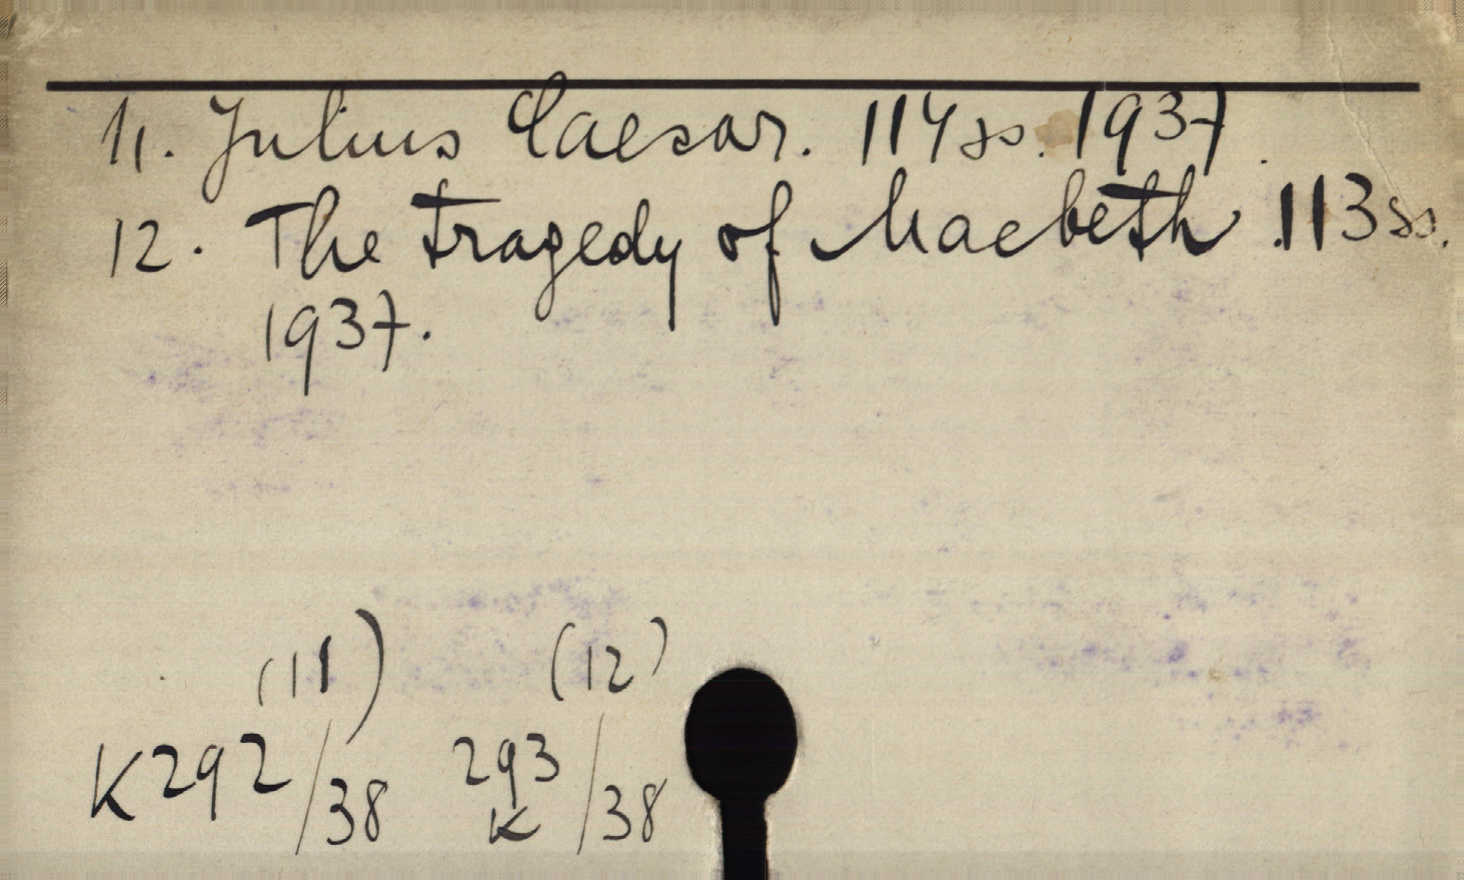 11. Julius Caesar. 114 ss. 1937.
12. The tragedy of Macbeth. 113 ss.
1937.
(11) (12)
K292/38 293/38
K